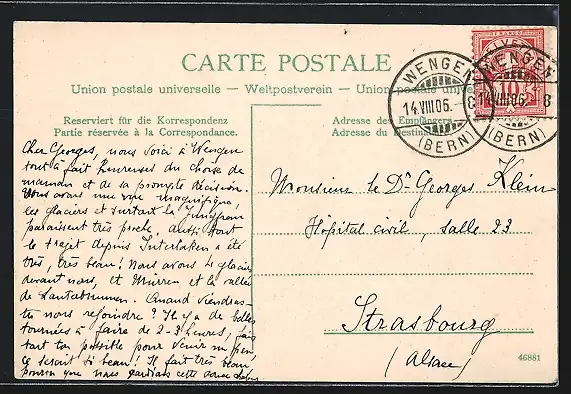 CARTE POSTALE
Union postale universelle — Weltpostverein — Union postale univer
Reserviert für die Korrespondenz
Partie réservée à la Correspondance.
Adresse des Empfängers
Adresse du Destina
WENGEN
14.VIII.06.–8
(BERN)
WENGEN
14.VIII.06. 8
(BERN)
HELVETIA
FRANCO
10
Cher Georges, nous voici à Wengen
tout à fait heureuses du choix de
maman et de sa prompte décision.
Nous avons une vue magnifique,
les glaciers et surtout la Jungfrau
paraissent très proche, aussi tout
le trajet depuis Interlaken a été
très, très beau! Nous avons le glacier
devant nous, et Mürren et la vallée
de Lauterbrunnen. Quand viendras-
tu nous rejoindre? Il y a de belles
tournées à faire de 2-3 heures, fais
tout ton possible pour venir
ce serait si beau! Il fait très beau,
pourvu que nous gardions cette
Monsieur le Dr Georges Klein
Hopital civil, salle 23
Strasbourg
(Alsace)
46881